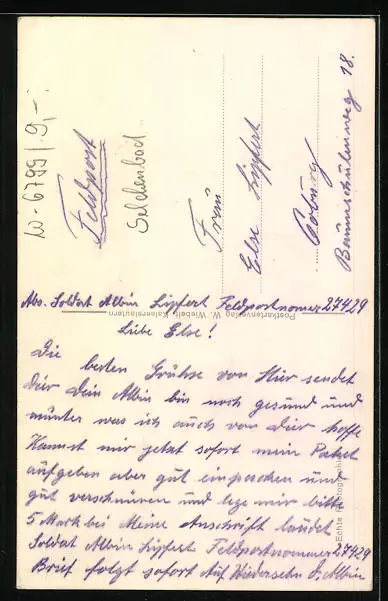 W-6799/9,-
Feldpost
Selchenbach
Frau
Else Lipfert
Coburg
Baumschulenweg 18.
Abs. Soldat Albin Lipfert Feldpostnomer 27429
Postkartenverlag W. Wiebelt, Kaiserslautern
Liebe Else!
Die besten Grühse von Hier sendet
Dir Dein Albin bin noch gesund und
munter was ich auch von Dir hoffe
Kannst mir jetzt sofort mein Paket
aufgeben aber gut einpacken und
gut verschnüren und lege mir bitte
5 Mark bei Meine Anschrift lautet
Soldat Albin Lipfert Feldpostnommer 27429
Brief folgt sofort Auf Wiedersehn D. Albin
Echte Photographie